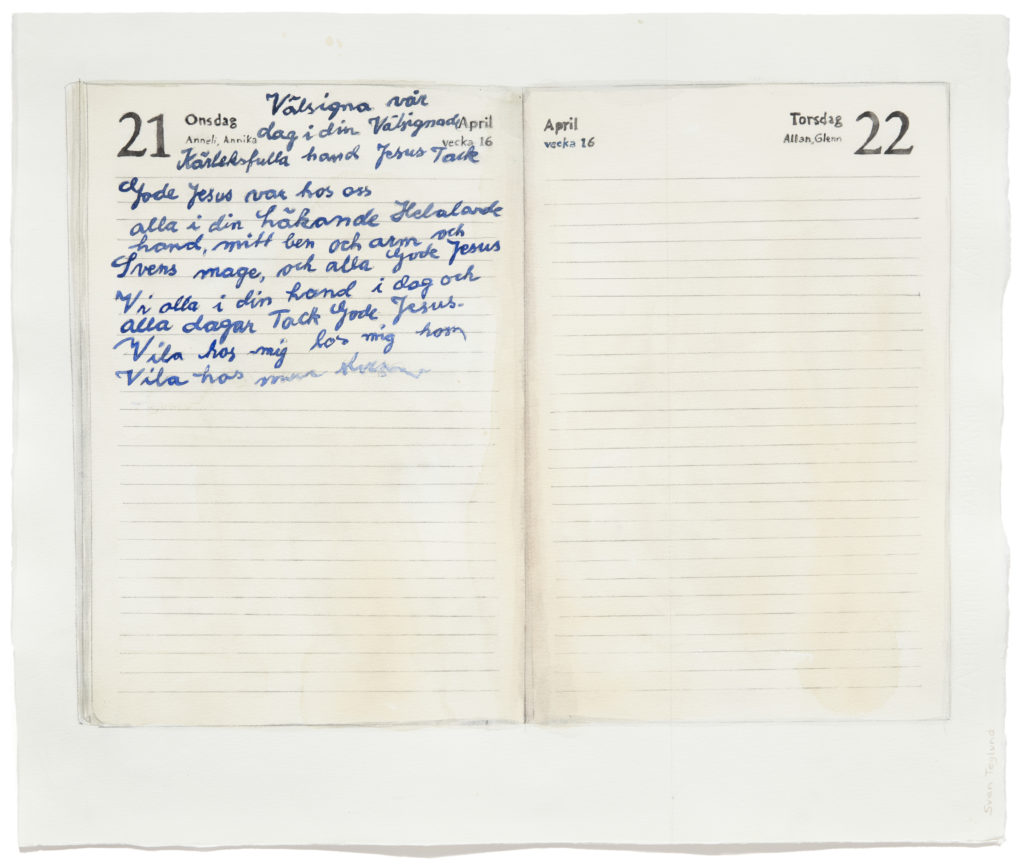 21
Onsdag
Anneli, Annika
April
vecka 16
Välsigna vår
dag i din Välsignade
Kärleksfulla hand Jesus Tack
Gode Jesus var hos oss
alla i din häkande Helalande
hand, mitt ben och arm och
Svens mage, och alla Gode Jesus
Vi alla i din hand i dag och
alla dagar Tack Gode Jesus.
Vila hos mig hos mig hom
Vila hos
April
vecka 16
Torsdag
Allan, Glenn
22
Sven Teglund